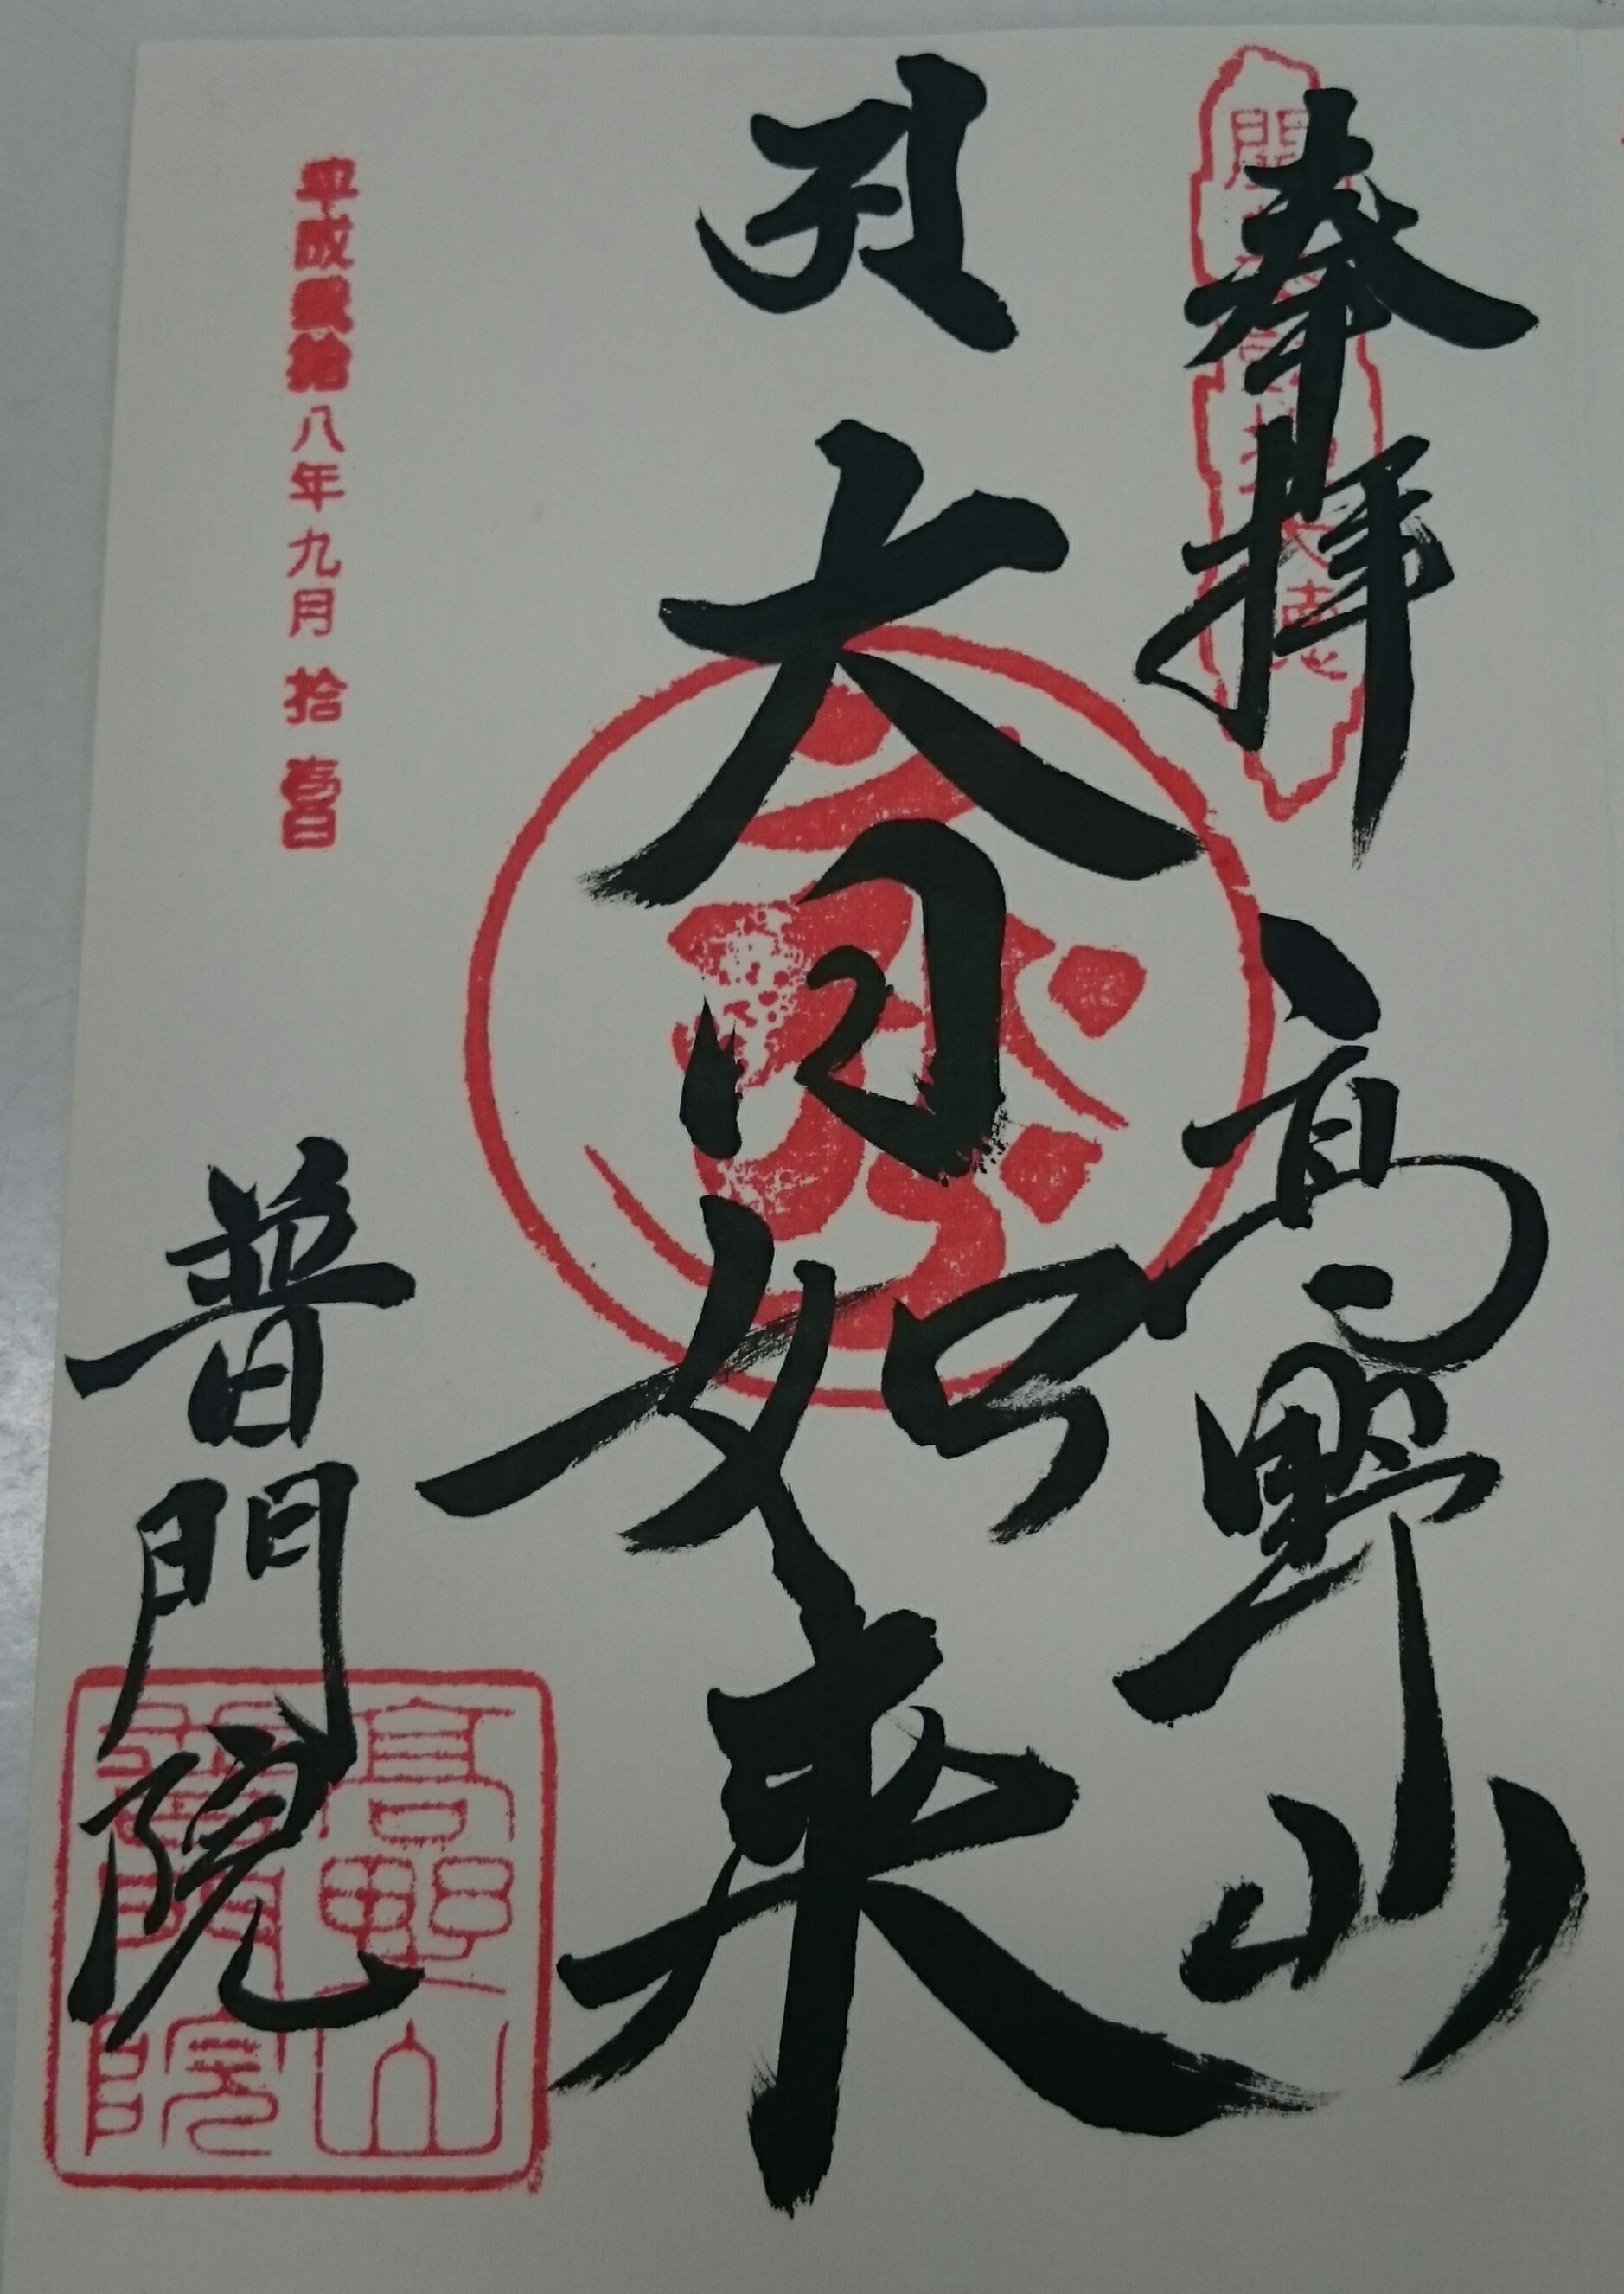 奉拝 高野山
大日如来
平成貳拾八年九月拾壹日
普門院
高野山
普門院